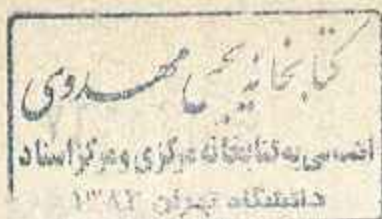 کتابخانه یحیی مهدوی
اهدایی به کتابخانه مرکزی و مرکز اسناد
دانشگاه تهران ۱۳۸۲